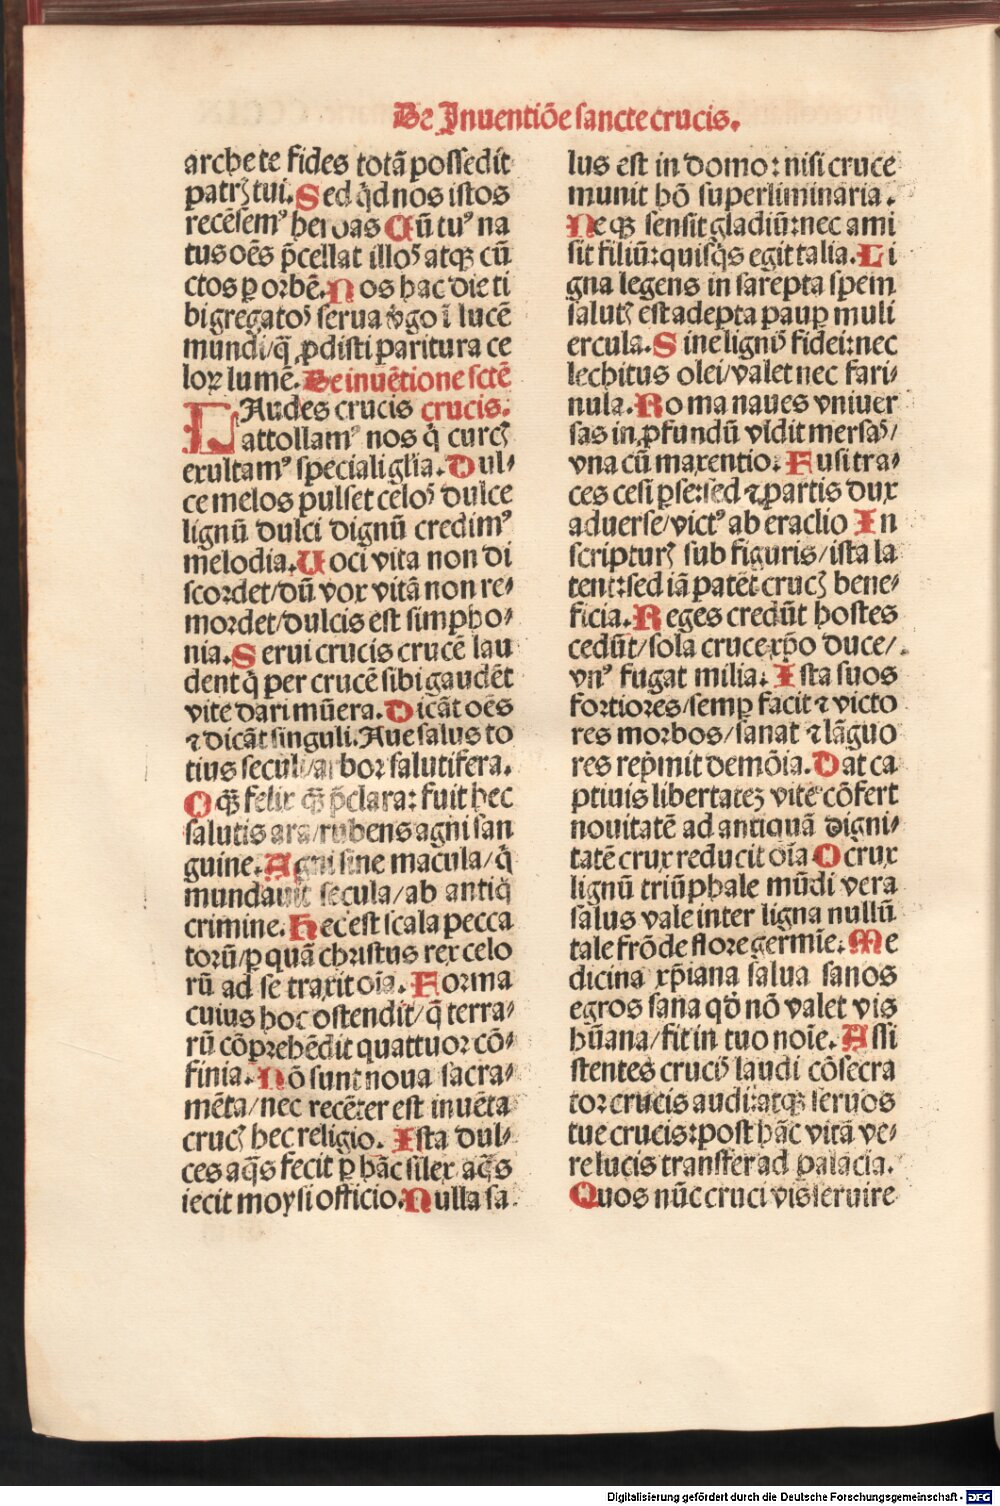 De Inuentiōe sancte crucis.
arche te fides totā possedit
patrꝫ tui. Sed q̄d nos istos
recēsemꝰ heroas Cū tuꝰ na
tus oēs p̄cellat illoꝝ atqꝫ cū
ctos ꝑ orbē. Nos hac die ti
bi gregatoꝝ serua v̄go ī lucē
mundi/q̄ ꝓdisti paritura ce
loꝝ lumē. De inuētione sctē
LAudes crucis crucis.
attollamꝰ nos q̄ curcꝫ
exultamꝰ speciali gl̄ia. Dul⸗
ce melos pulset celoꝝ dulce
lignū dulci dignū credimꝰ
melodia. Uoci vita non di
scordet/dū vox vitā non re⸗
mordet/dulcis est simpho⸗
nia. Serui crucis crucē lau
dent q̄ per crucē sibi gaudēt
vite dari mūera. Dicāt oēs
⁊ dicāt singuli. Aue salus to
tius seculi/arbor salutifera.
O qꝫ̄ felix qꝫ̄ p̄clara: fuit hec
salutis ara/rubens agni san
guine. Agni sine macula/q̄
mundauit secula/ab antiq̄
crimine. Hec est scala pecca
torū/ꝑ quā christus rex celo
rū ad se traxit oīa. Forma
cuius hoc ostendit/q̄ terra⸗
rū cōprehēdit quattuor cō⸗
finia. Nō sunt noua sacra⸗
mēta/nec recēter est inuēta
crucꝫ hec religio. Ista dul⸗
ces aq̄s fecit ꝑ hāc silex aq̄s
iecit moysi officio. Nulla sa
lus est in domo: nisi cruce
munit hō superliminaria.
Neqꝫ sensit gladiū: nec ami
sit filiū: quisq̄s egit talia. Li
gna legens in sarepta spem
salutꝫ est adepta pauꝑ muli
ercula. Sine lignꝭ fidei: nec
lechitus olei/valet nec fari⸗
nula. Roma naues vniuer
sas in ꝓfundū vidit mersas/
vna cū maxentio. Fusi tra⸗
ces cesi ꝑse: sed ⁊ partis dux
aduerse/victꝰ ab eraclio In
scripturꝫ sub figuris/ista la
tent: sed iā patēt crucꝫ bene⸗
ficia. Reges credūt hostes
cedūt/sola cruce xp̄o duce/
vnꝰ fugat milia. Ista suos
fortiores/semꝑ facit ⁊ victo
res morbos/sanat ⁊ lāguo
res rep̄mit demōia. Dat ca
ptiuis libertatez vite cōfert
nouitatē ad antiquā digni⸗
tatē crux reducit oīa O crux
lignū triūphale mūdi vera
salus vale inter ligna nullū
tale frōde flore germīe: Me
dicina xp̄iana salua sanos
egros sana qd̄ nō valet vis
hūana/fit in tuo noīe. Assi
stentes crucꝭ laudi cōsecra
tor crucis audi: atqꝫ seruos
tue crucis: post hāc vitā ve⸗
re lucis transfer ad palacia.
Quos nūc cruci vis seruire
Digitalisierung gefördert durch die Deutsche Forschungsgemeinschaft - DFG